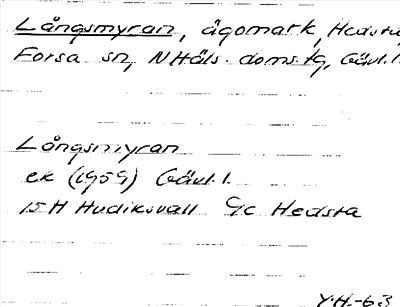 Långsmyran, ägomark, Hedsta,
Forsa sn, N Häls. doms.tg, Gävl.l.
Långsmyran
ek (1959) Gävl.l.
15H Hudiksvall 9c Hedsta
Y.H.-63